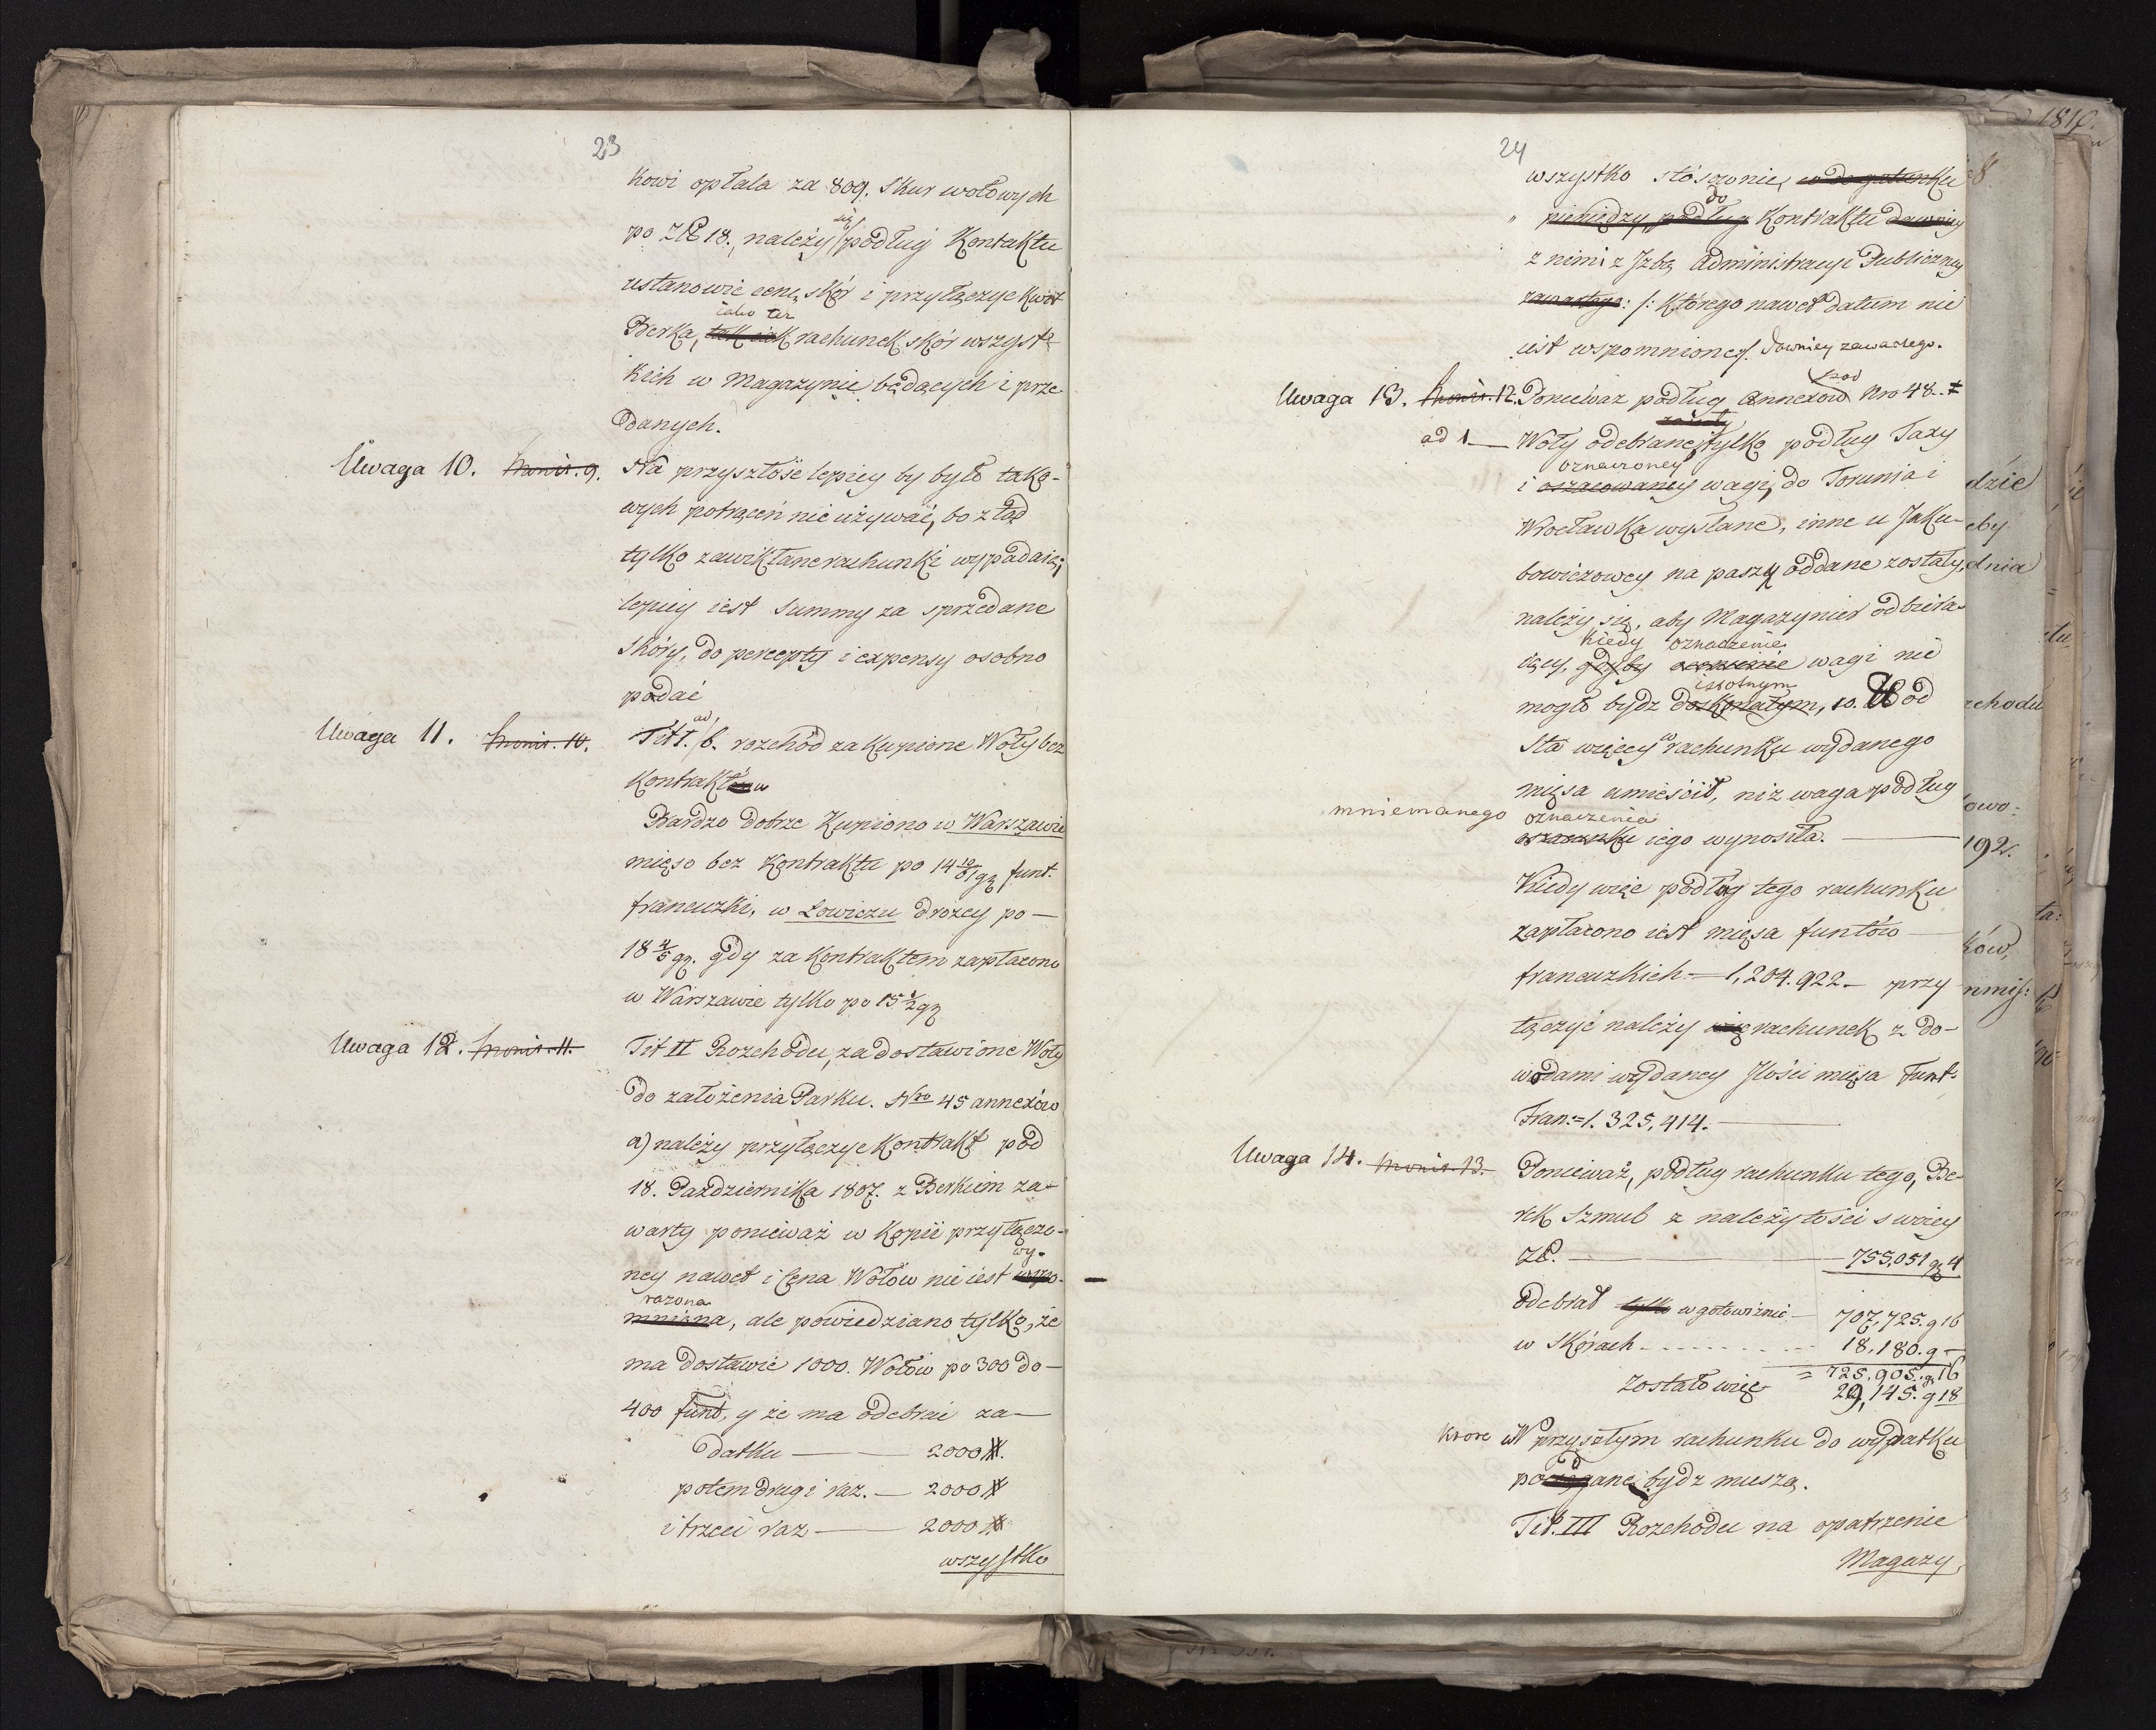 23
kowi opłala za 809. Skur wołowych
się
po ZłP 18., należy podług Kontaktu
ustanowić cenę skór i przyłączyć kwit
iako też
Berka, tak iak rachunek skór wszyst-
kich w Magazynie będących i prze
danych.
Uwaga 10. Monit. 9. Na przyszłość lepiey by było tako-
wych potrąceń nie używać, bo ztąd
tylko zawikłane rachunki wypadaią;
lepiey iest Summy za sprzedane
Skóry, do percepty i expensy osobno
podać
Uwaga 11. Monit. 10. Tit I. ad b. rozchód za kupione Woły bez
Kontraktow
Bardzo dobrze Kupiono w Warszawie
mięso bez Kontraktu po 14 gą funt.
francuzki, w Łowiczu drożey po —
18 4/5 gą. gdy za Kontraktem zapłacono
w Warszawie tylko po 15 1/2 gą
Uwaga 12. Monit. 11. Tit II Rozchodu, za dostawione Woły
do założenia Parku. Nro 45 annexów
a) należy przyłączyć Kontrakt pod
18. Października 1807. z Berkiem za-
warty ponieważ w Kopii przyłączo-
wy-
ney nawet i Cena Wołow nie iest wspo-
rażona
mniona, ale powiedziano tylko, że
ma dostawić 1000. Wołów po 300 do —
400 funt, y że ma odebrać za —
datku — 2000 #.
potem drugi raz. — 2000 #
i trzeci raz — 2000 #
wszystko
24
wszystko stósownie, co do gatunku
do
pieniędzy, podług Kontraktu dawniey
z nimi z Jzbą Administracyi Publiczney
zawartego: /: Którego nawet datum nie
iest wspomnione/. dawniey zawartego.
pod
Uwaga 13. Monit. 12. Ponieważ podług annexow Nro 48.
zostały
ad 1 — Woły odebrane, tylko podług Taxy
oznaczoney
i oszacowaney wagi, do Torunia i
Wrocławka wysłane, inne u Jaku-
bowiczowey na paszę oddane zostały,
należy się, aby Magazynier odbiera-
kiedy oznaczenie
iący, gdyby wagi nie
istotnym
mogło bydz doskonałym, 10. od
Sta więcey w rachunku wydanego
mięsa umieścił, niż waga podług
mniemanego oznaczenia
szacunku iego wynosiła. —
Kiedy więc podług tego rachunku
zapłacono iest mięsa funtów —
francuzkich — 1,204.922 — przy
łączyć należy się rachunek z do-
wodami wydaney Jlości mięsa Funt.
Fran: = 1.325,414. —
Uwaga 14. Monit. 13. Ponieważ, podług rachunku tego, Be-
rek Szmul z należytości swoiey
ZłP. — 755,051 gą 4
Odebrał tylko w gotowiźnie — 707,725. g 16
w Skórach - - - - 18,180. g —
= 725,905. g. 16
zostało więc 29,145. g 18
które W przyszłym rachunku do wydatku
bydz muszą.
Tit. III Rozchodu na opatrzenie
Magazy
1810.
8.
dzie
eby
dnia
rchodu
łowo-
192.
ków,
nmiſ: